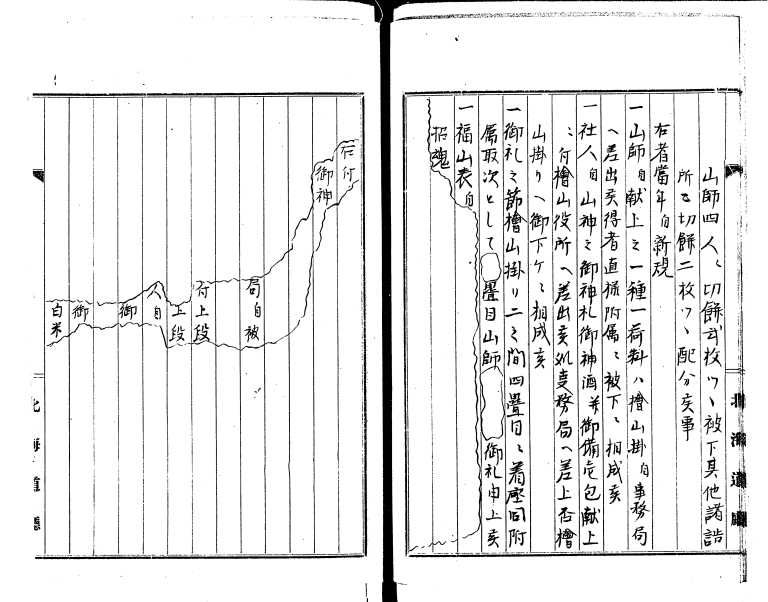 山師四人ミ切餅弐枚ツヽ被下其他諸詰
所ニ切餅二枚ツヽ配分亥事
右者當年自新規
一山師自献上之一種一荷料ハ檜山掛自事務局
ヘ差出亥得者直様附属ミ被下ミ相成亥
一社人自山神之御神札御神酒并御備壱包献上
ミ付檜山役所ヘ差出亥処事務局ヘ差上否檜
山掛リヘ御下ケミ相成亥
一御礼之節檜山掛リ二之間四畳目ミ着座同附
属取次として 畳目山師 御礼申上亥
一福山表自
招魂
右付
御神
局自被
付上段
上段
人自
御
御
白米
北海道廳
北海道廳